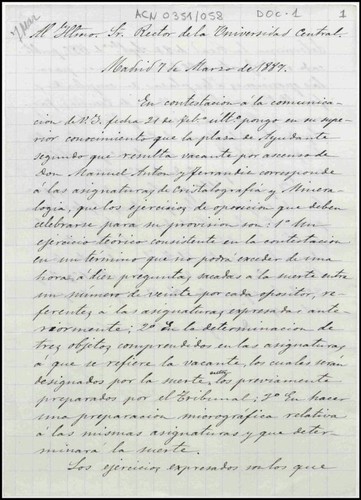 ACN 0351/058 DOC-1 1
7 Mar
Al Iltmo. Sr. Rector de la Universidad Central.
Madrid 7 de Marzo de 1887.
En contestación á la comunica-
ción de V.I. fecha 28 de febº ultº pongo en su supe-
rior conocimiento que la plaza de Ayudante
segundo que resulta vacante por ascenso de
Don Manuel Antón y Ferrandiz corresponde
á las asignaturas de Cristalografía y Minera-
logía, que los ejercicios de oposición que deben
celebrarse para su provisión son: 1º Un
ejercicio teórico consistente en la contestación
en un término que no podrá exceder de una
hora, á diez preguntas sacadas á la suerte entre
un número de veinte por cada opositor, re-
ferentes á las asignaturas expresadas ante-
riormente; 2º En la determinación de
tres objetos comprendidos en las asignaturas
á que se refiere la vacante, los cuales serán
designados por la suerte, entre los previamente
preparados por el Tribunal; 3º En hacer
una preparación micrográfica relativa
á las mismas asignaturas y que deter-
minará la suerte.
Los ejercicios expresados son los que